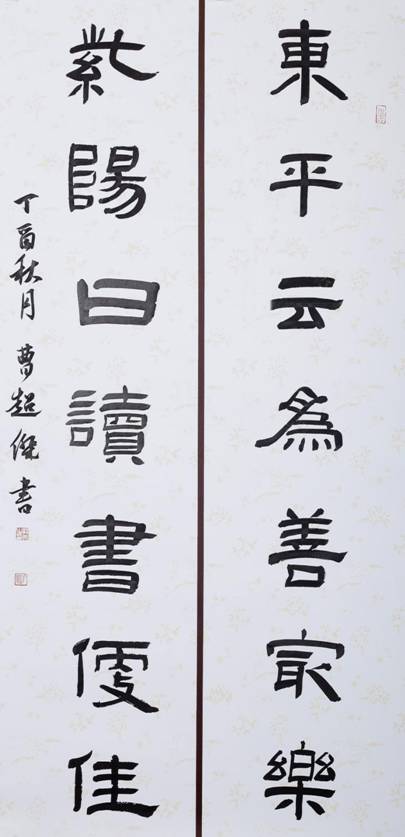 東平云為善冣樂
紫陽曰讀書便佳
丁酉秋月 曹超傑書